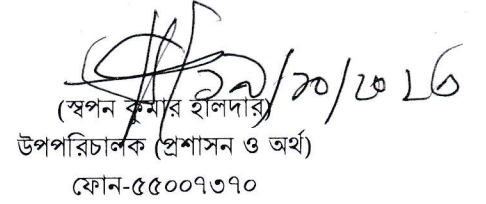 ১৯/১০/২০২৩
(স্বপন কুমার হালদার)
উপপরিচালক (প্রশাসন ও অর্থ)
ফোন-৫৫০০৭৩৭০